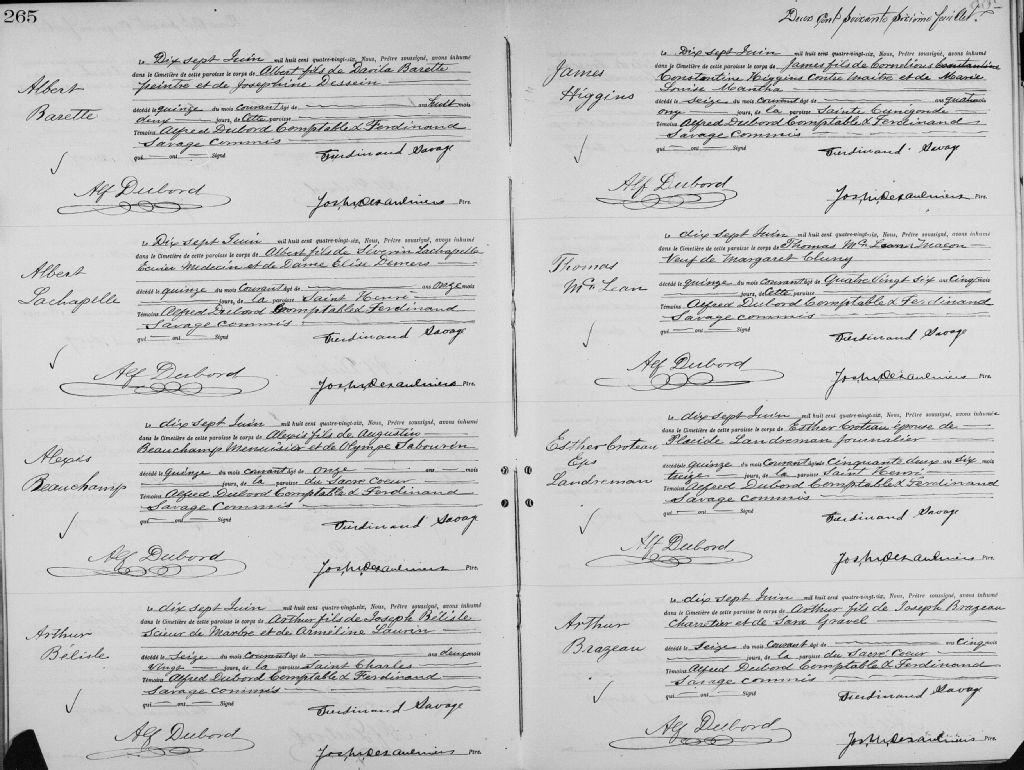 265
Albert
Barette
Le Dix sept Juin mil huit cent quatre-vingt-six, Nous, Prêtre soussigné, avons inhumé
dans le Cimetière de cette paroisse le corps de Albert fils de Davila Barette
peintre et de Josephine Dessein
décédé le quinze du mois courant âgé de ans huit mois
deux jours, de Cette paroisse
Témoins Alfred Dubord Comptable & Ferdinand
Savage Commis
qui ont Signé
Ferdinand Savage
Alf Dubord
Jos, M, Desaulniers Ptre.
Albert
Lachapelle
Le Dix sept Juin mil huit cent quatre-vingt-six, Nous, Prêtre soussigné, avons inhumé
dans le Cimetière de cette paroisse le corps de Albert fils de Séverin Lachapelle
Ecuier Medecin et de Dame Elise Demers
décédé le quinze du mois Courant âgé de ans onze mois
jours, de la paroisse Saint Henri
Témoins Alfred Dubord Comptable & Ferdinand
Savage commis
qui ont Signé
Ferdinand Savage
Alf Dubord
Jos, M, Desaulniers Ptre.
Alexis
Beauchamp
Le dix sept Juin mil huit cent quatre-vingt-six, Nous, Prêtre soussigné, avons inhumé
dans le Cimetière de cette paroisse le corps de Alexis fils de Augustin
Beauchamp Menuisier et de Olympe Tabourin
décédé le quinze du mois courant âgé de onze ans mois
jours, de la paroisse du Sacre Coeur
Témoins Alfred Dubord Comptable & Ferdinand
Savage Commis
qui ont Signé
Ferdinand Savage
Alf Dubord
Jos, M, Desaulniers Ptre.
Arthur
Bélisle
Le dix sept Juin mil huit cent quatre-vingt-six, Nous, Prêtre soussigné, avons inhumé
dans le Cimetière de cette paroisse le corps de Arthur fils de Joseph Bélisle
Scieur de Marbre et de Armeline Laurin
décédé le Seize du mois Courant âgé de ans deux mois
Vingt jours, de la paroisse Saint Charles
Témoins Alfred Dubord Comptable & Ferdinand
Savage commis
qui ont Signé
Ferdinand Savage
Alf Dubord
Jos, M, Desaulniers Ptre.
Deux Cent Soixante sixième feuillet
James
Higgins
Le Dix sept Juin mil huit cent quatre-vingt-six, Nous, Prêtre soussigné, avons inhumé
dans le Cimetière de cette paroisse le corps de James fils de Cornelious Constantine
Constantine Higgins Contre Maitre et de Marie
Louise Mantha
décédé le Seize du mois Courant âgé de ans quatre mois
onze jours, de la paroisse Sainte Cunigonde
Témoins Alfred Dubord Comptable & Ferdinand
Savage commis
qui ont Signé
Ferdinand Savage
Alf Dubord
Jos, M, Desaulniers Ptre.
Thomas
Mc Lean
Le dix sept Juin mil huit cent quatre-vingt-six, Nous, Prêtre soussigné, avons inhumé
dans le Cimetière de cette paroisse le corps de Thomas Mc Lean Maçon
Veuf de Margaret Cluny
décédé le quinze du mois courant âgé de Quatre Vingt Six ans Cinq mois
jours, de Cette paroisse
Témoins Alfred Dubord Comptable & Ferdinand
Savage commis
qui ont Signé
Ferdinand Savage
Alf Dubord
Jos, M, Desaulniers Ptre.
Esther Croteau
Eps
Landreman
Le dix sept Juin mil huit cent quatre-vingt-six, Nous, Prêtre soussigné, avons inhumé
dans le Cimetière de cette paroisse le corps de Esther Croteau épouse de
Placide Landreman Journalier
décédé le quinze du mois Courant âgé de Cinquante deux ans Six mois
treize jours, de la paroisse Saint Henri
Témoins Alfred Dubord Comptable & Ferdinand
Savage commis
qui ont Signé
Ferdinand Savage
Alf Dubord
Jos, M, Desaulniers Ptre.
Arthur
Brazeau
Le dix sept Juin mil huit cent quatre-vingt-six, Nous, Prêtre soussigné, avons inhumé
dans le Cimetière de cette paroisse le corps de Arthur fils de Joseph Brazeau
Charretier et de Sara Gravel
décédé le Seize du mois Courant âgé de ans Cinq mois
jours, de la paroisse du Sacre Coeur
Témoins Alfred Dubord Comptable & Ferdinand
Savage commis
qui ont Signé
Ferdinand Savage
Alf Dubord
Jos, M, Desaulniers Ptre.